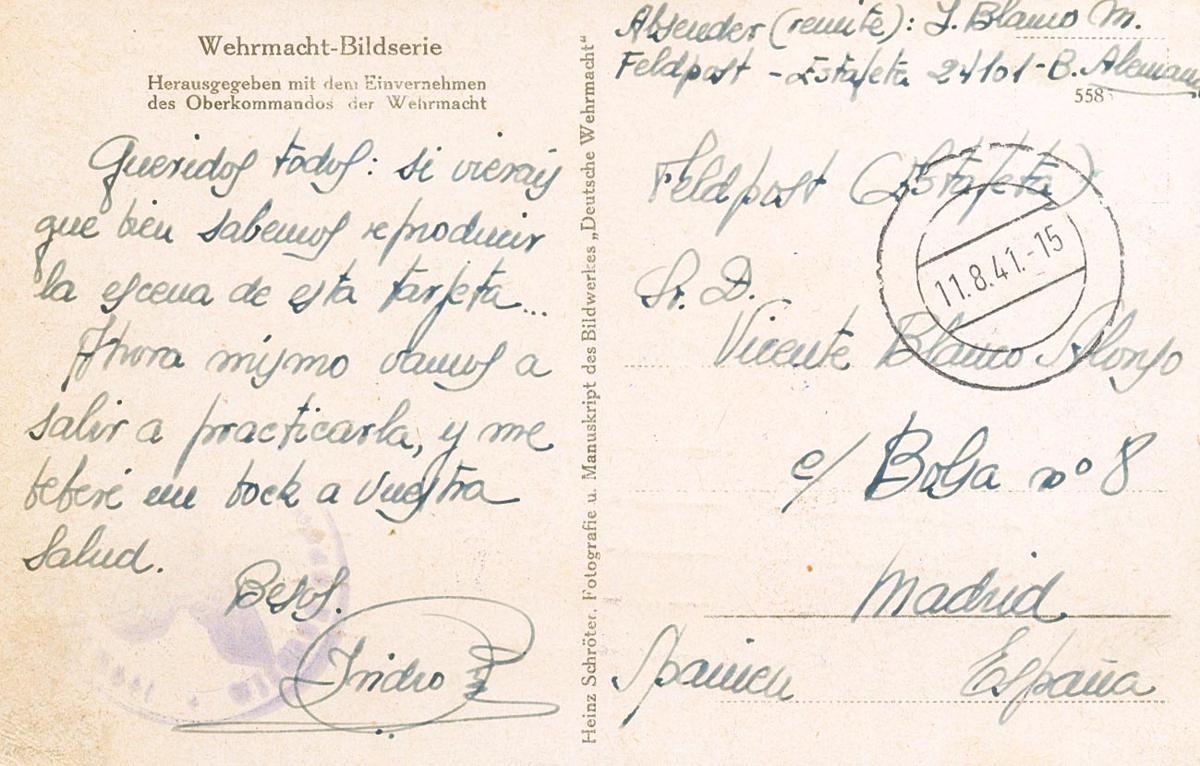 Wehrmacht-Bildserie
Herausgegeben mit dem Einvernehmen
des Oberkommandos der Wehrmacht
Queridos todos: si vierais
que bien sabemos reproducir
la escena de esta tarjeta...
Ahora mismo vamos a
salir a practicarla, y me
beberé un bock a vuestra
salud.
Besos.
Isidro
Heinz Schröter, Fotografie u. Manuskript des Bildwerkes „Deutsche Wehrmacht“
Absender (remite): I. Blanco M.
Feldpost - Estafeta 24101-B. Alemania
558
Feldpost (Estafeta)
11.8.41.-15
Sr. D.
Vicente Blanco Alonso
c/ Bolsa nº 8
Madrid
Spanien España